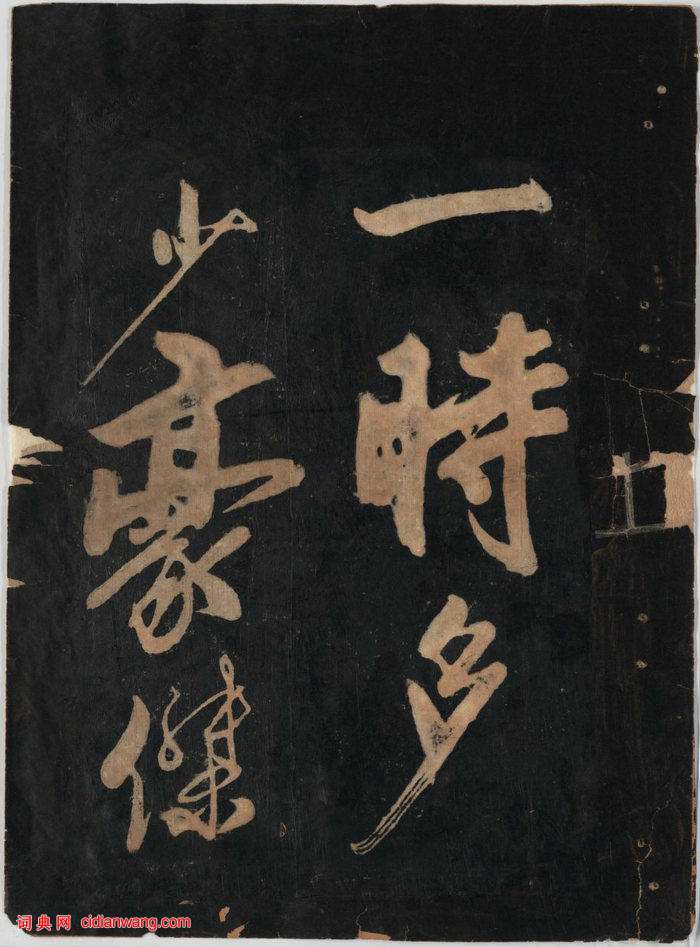 一時多
少豪傑
词典网 cidianwang.com